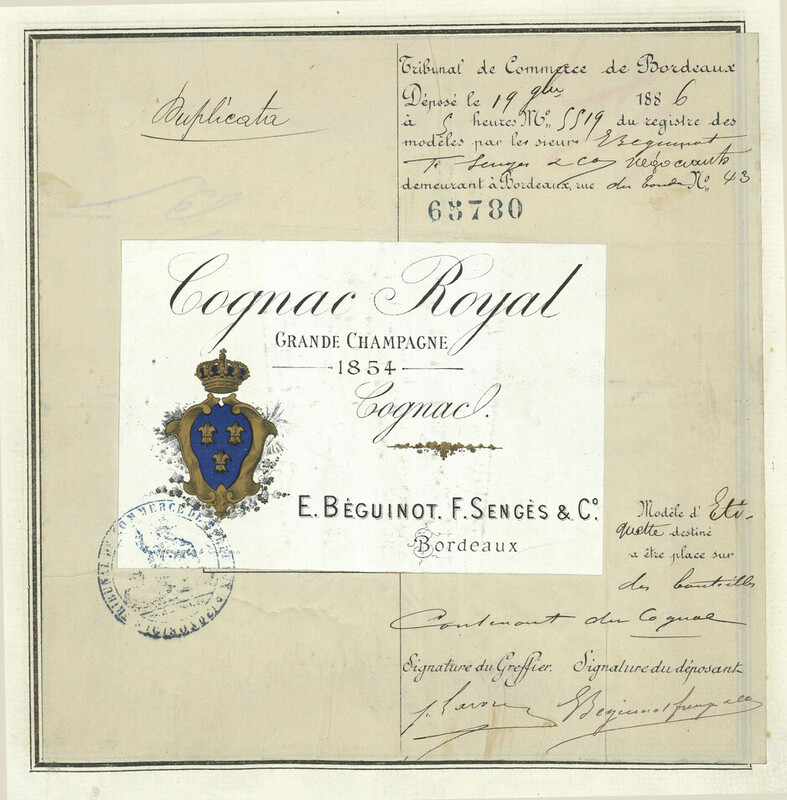 Duplicata
Tribunal de Commerce de Bordeaux
Déposé le 19 9bre 1886
à 5 heures No. 5519 du registre des
modèles par les sieurs E Béguinot
F. Senges & Co négociants
demeurant à Bordeaux, rue du No. 43
65780
Cognac Royal
GRANDE CHAMPAGNE
1854
Cognac.
E. BÉGUINOT. F. SENGÈS & Co.
Bordeaux
Modèle d'Eti-
quette destiné
a être place sur
des bouteilles
Contenant du Cognac
Signature du Greffier. Signature du déposant
TRIBUNAL DE COMMERCE DE